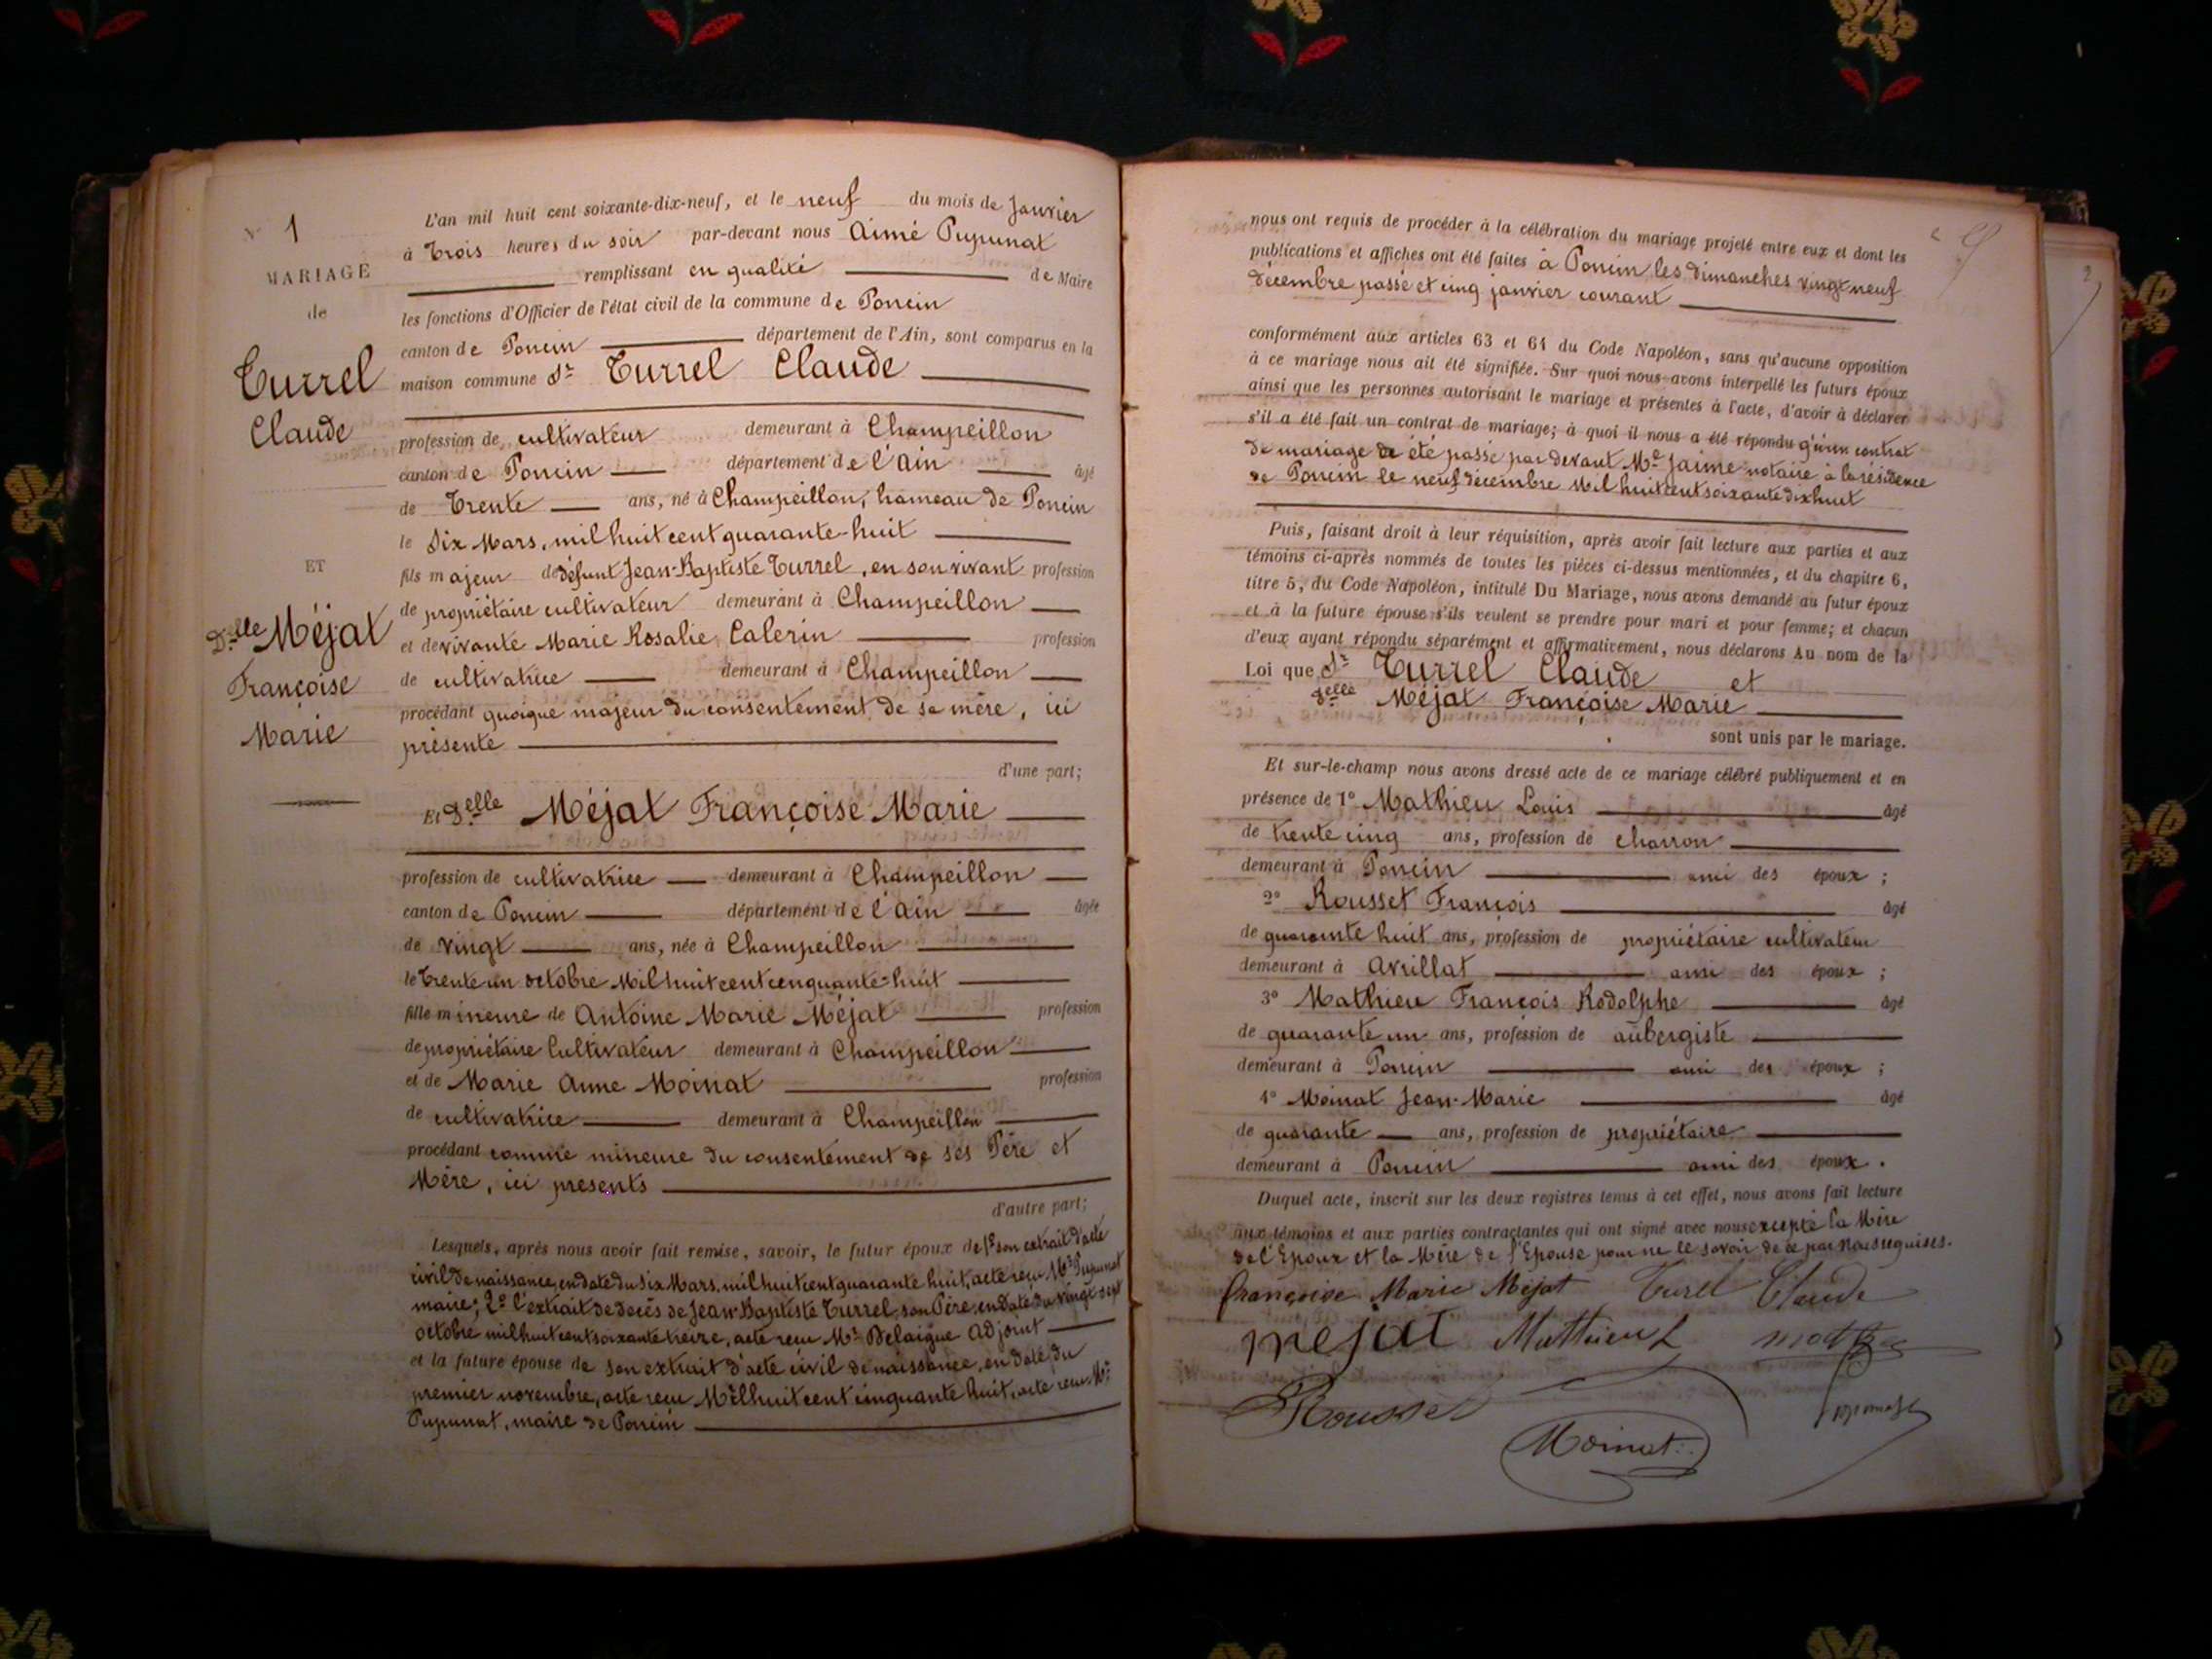 N° 1
MARIAGE
de
Turrel
Claude
ET
D.lle Méjat
Françoise
Marie
L'an mil huit cent soixante-dix-neuf, et le neuf du mois de Janvier
à Trois heures du soir par-devant nous Aimé Pupunat
remplissant en qualité de Maire
les fonctions d'Officier de l'état civil de la commune de Poncin
canton de Poncin département de l'Ain, sont comparus en la
maison commune Sr Turrel Claude
profession de cultivateur demeurant à Champeillon
canton de Poncin département de l'Ain âgé
de Trente ans, né à Champeillon, hameau de Poncin
le Six Mars, mil huit cent quarante-huit
fils majeur de défunt Jean-Baptiste Turrel, en son vivant profession
de propriétaire cultivateur demeurant à Champeillon
et de vivante Marie Rosalie Calerin profession
de cultivatrice demeurant à Champeillon
procédant quoique majeur du consentement de sa mère, ici
présente
d'une part;
Et d.elle Méjat Françoise Marie
profession de cultivatrice demeurant à Champeillon
canton de Poncin département de l'Ain âgée
de vingt ans, née à Champeillon
le Trente un octobre Mil huit cent cinquante-huit
fille mineure de Antoine Marie Méjat profession
de propriétaire Cultivateur demeurant à Champeillon
et de Marie Anne Moinat profession
de cultivatrice demeurant à Champeillon
procédant comme mineure du consentement de ses Père et
Mère, ici présents
d'autre part;
Lesquels, après nous avoir fait remise, savoir, le futur époux de 1° son extrait d'acte
civil de naissance, en date du Six Mars, mil huit cent quarante huit, acte reçu Mr Pupunat
maire; 2° l'extrait de décès de Jean-Baptiste Turrel, son Père, en date du vingt sept
octobre mil huit cent soixante treize, acte reçu Mr Delaigue Adjoint
et la future épouse de son extrait d'acte civil de naissance, en date du
premier novembre, acte reçu Mil huit cent cinquante huit, acte reçu Mr
Pupunat, maire de Poncin
nous ont requis de procéder à la célébration du mariage projeté entre eux et dont les
publications et affiches ont été faites à Poncin les Dimanches vingt neuf
décembre passé et cinq janvier courant
conformément aux articles 63 et 64 du Code Napoléon, sans qu'aucune opposition
à ce mariage nous ait été signifiée. Sur quoi nous avons interpellé les futurs époux
ainsi que les personnes autorisant le mariage et présentes à l'acte, d'avoir à déclarer
s'il a été fait un contrat de mariage; à quoi il nous a été répondu qu'un contrat
de mariage a été passé par devant Me Jaime notaire à la résidence
de Poncin le neuf décembre Mil huit cent soixante dix huit
Puis, faisant droit à leur réquisition, après avoir fait lecture aux parties et aux
témoins ci-après nommés de toutes les pièces ci-dessus mentionnées, et du chapitre 6,
titre 5, du Code Napoléon, intitulé Du Mariage, nous avons demandé au futur époux
et à la future épouse s'ils veulent se prendre pour mari et pour femme; et chacun
d'eux ayant répondu séparément et affirmativement, nous déclarons Au nom de la
Loi que Sr Turrel Claude et
d.elle Méjat Françoise Marie
sont unis par le mariage.
Et sur-le-champ nous avons dressé acte de ce mariage célébré publiquement et en
présence de 1° Mathieu Louis âgé
de trente cinq ans, profession de charron
demeurant à Poncin ami des époux ;
2° Rousset François âgé
de quarante huit ans, profession de propriétaire cultivateur
demeurant à Avrillat ami des époux ;
3° Mathieu François Rodolphe âgé
de quarante un ans, profession de aubergiste
demeurant à Poncin ami des époux ;
4° Moinat Jean-Marie âgé
de quarante ans, profession de propriétaire
demeurant à Poncin ami des époux.
Duquel acte, inscrit sur les deux registres tenus à cet effet, nous avons fait lecture
aux témoins et aux parties contractantes qui ont signé avec nous excepté la Mère
de l'Epoux et la Mère de l'Epouse pour ne le savoir de ce par Nous requises.
françoise Marie Mejat Turel Claude
mejat Mathieu L
Rousset
Moinat
2